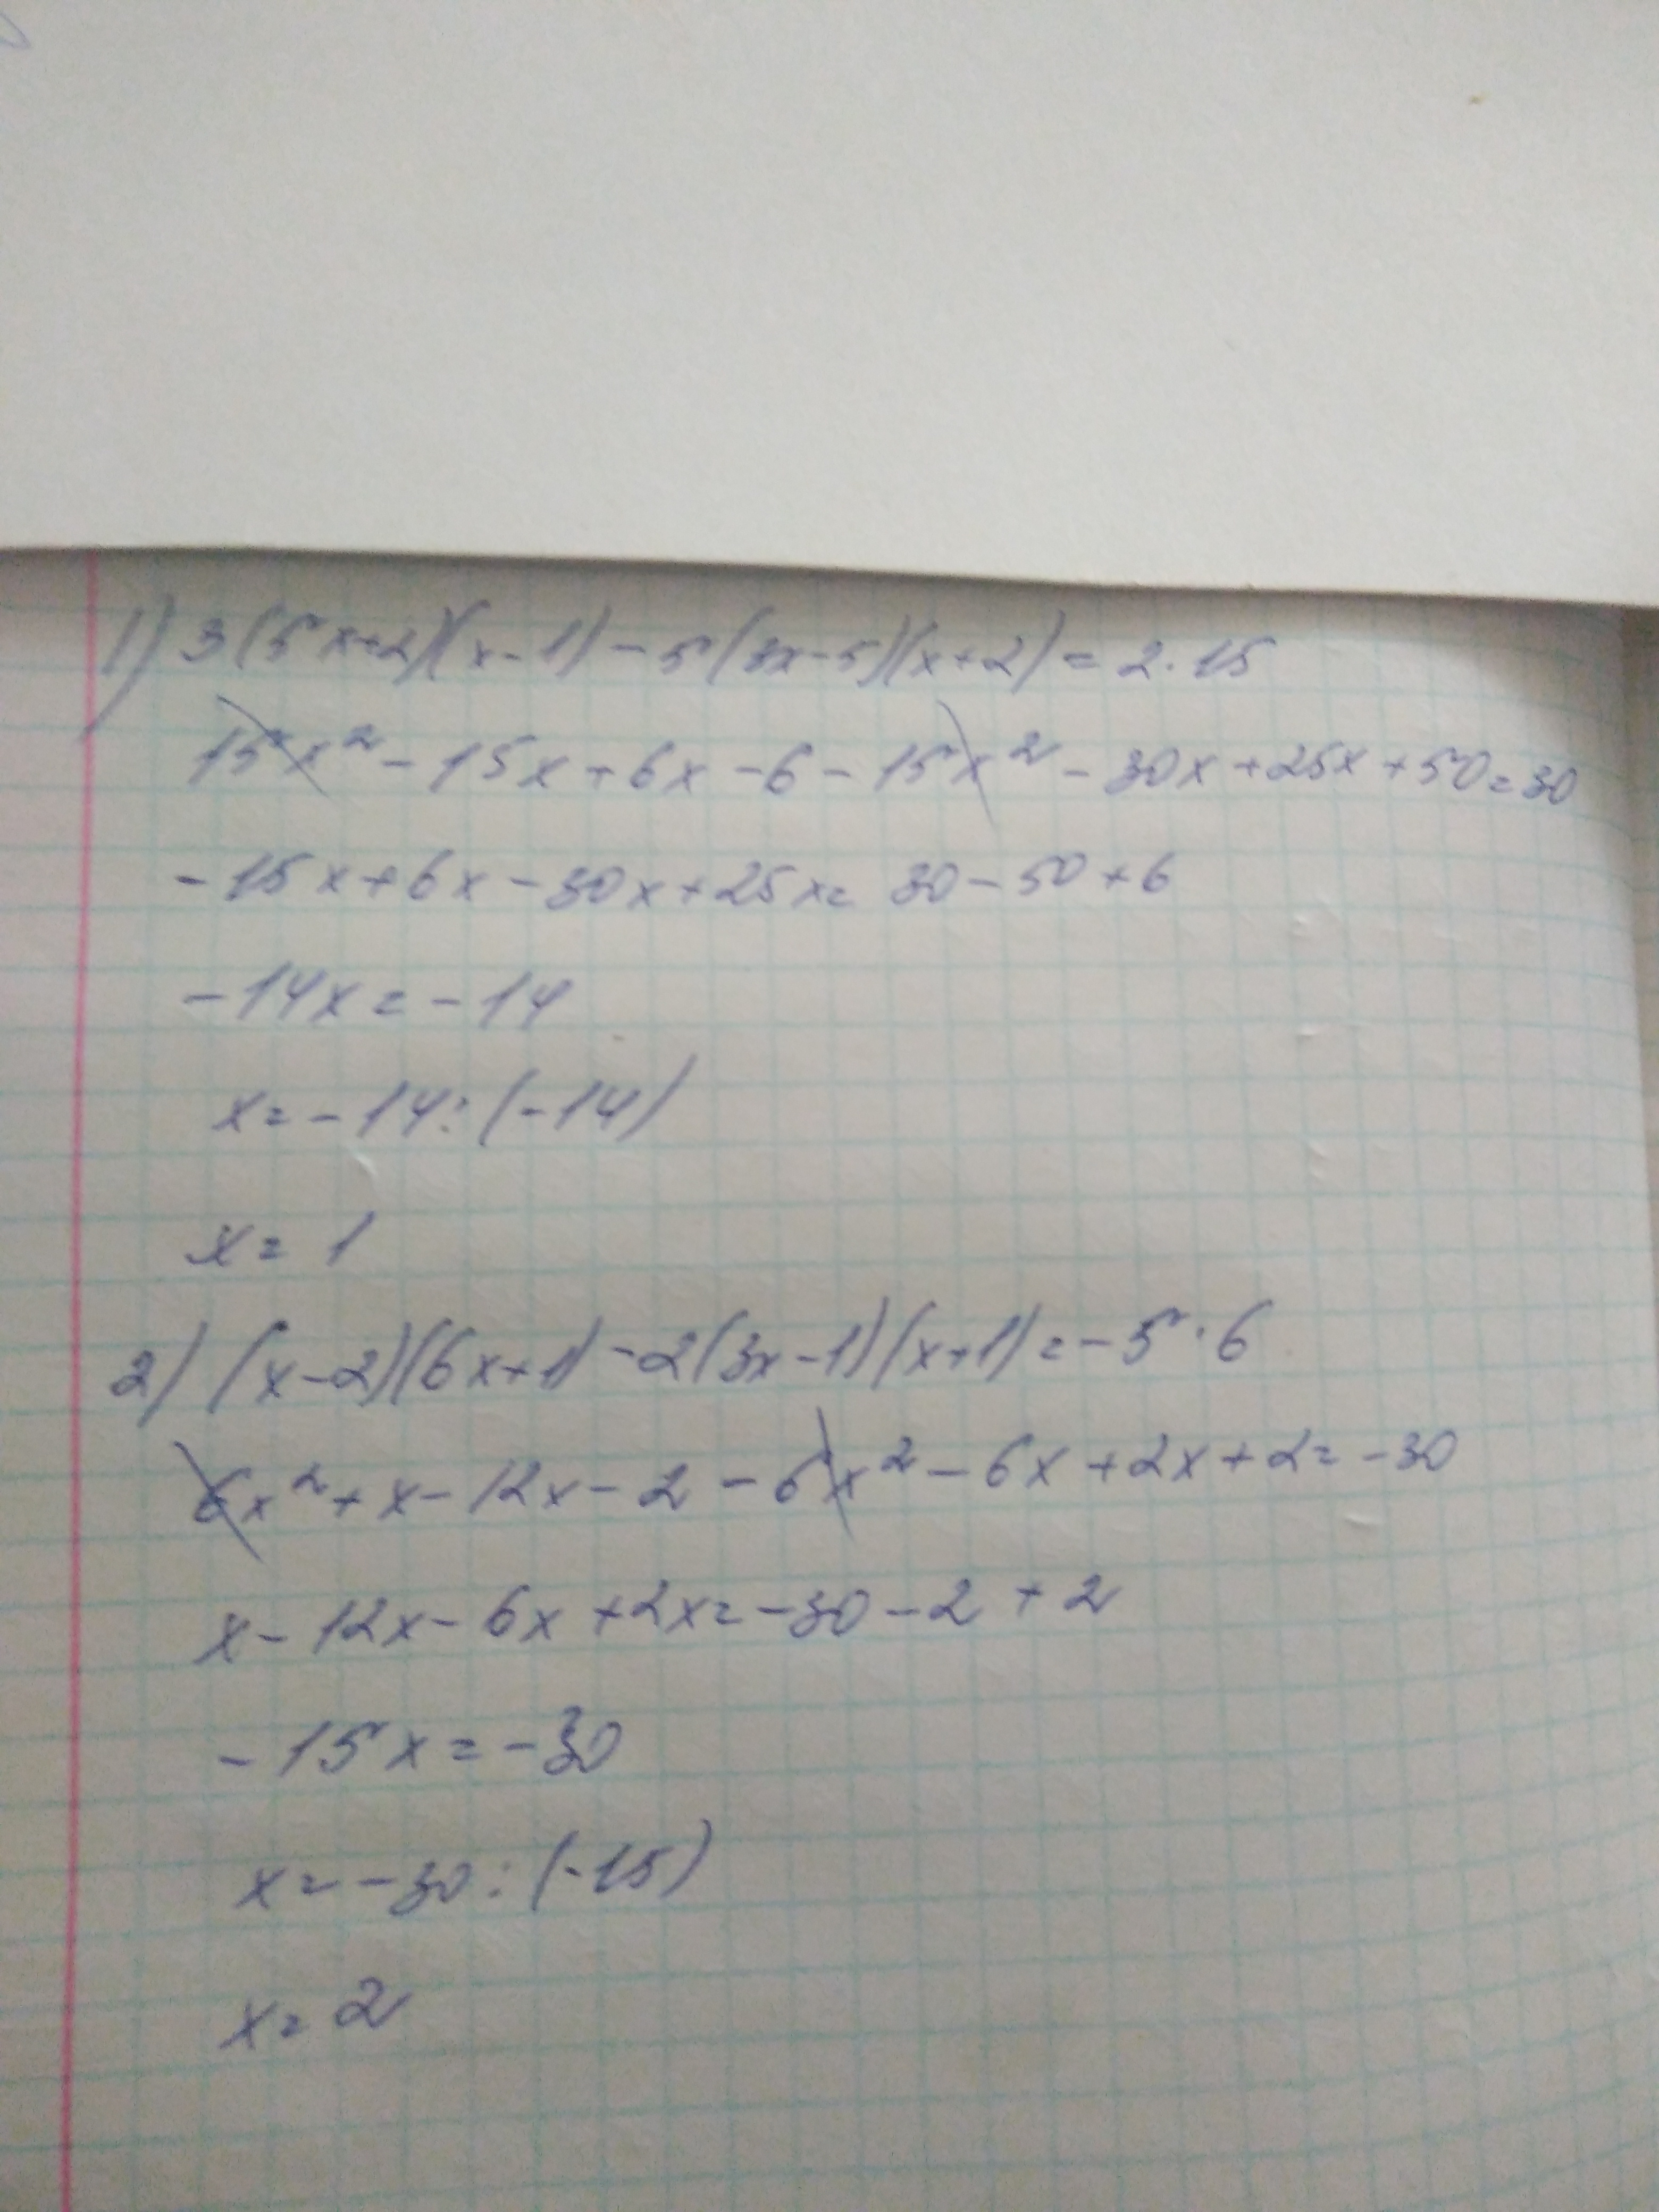 1) 3(5x+2)(x-1)-5(3x-5)(x+2)=2·15
15x²-15x+6x-6-15x²-30x+25x+50=30
-15x+6x-30x+25x=30-50+6
-14x=-14
x=-14:(-14)
x=1
2) (x-2)(6x+1)-2(3x-1)(x+1)=-5·6
6x²+x-12x-2-6x²-6x+2x+2=-30
x-12x-6x+2x=-30-2+2
-15x=-30
x=-30:(-15)
x=2